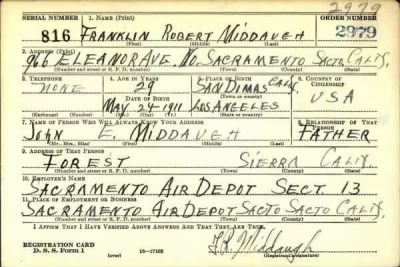 2979
SERIAL NUMBER 1. NAME (Print) ORDER NUMBER
816 FRANKLIN ROBERT MIDDAUGH 2979
(First) (Middle) (Last)
2. ADDRESS (Print)
966 ELEANOR AVE, NO. SACRAMENTO SACTO, CALIF.
(Number and street or R. F. D. number) (Town) (County) (State)
3. TELEPHONE 4. AGE IN YEARS 5. PLACE OF BIRTH 6. COUNTRY OF CITIZENSHIP
NONE 29 SAN DIMAS CALIF.
DATE OF BIRTH
MAY 24-1911 LOS ANGELES USA
(Exchange) (Number) (Mo.) (Day) (Yr.) (State or country)
7. NAME OF PERSON WHO WILL ALWAYS KNOW YOUR ADDRESS 8. RELATIONSHIP OF THAT PERSON
JOHN E. MIDDAUGH FATHER
(First) (Middle) (Last)
9. ADDRESS OF THAT PERSON
FOREST SIERRA CALIF.
(Number and street or R. F. D. number) (Town) (County) (State)
10. EMPLOYER'S NAME
SACRAMENTO AIR DEPOT SECT. 13
11. PLACE OF EMPLOYMENT OR BUSINESS
SACRAMENTO AIR DEPOT SACTO SACTO CALIF.
(Number and street or R. F. D. number) (Town) (County) (State)
I AFFIRM THAT I HAVE VERIFIED ABOVE ANSWERS AND THAT THEY ARE TRUE.
REGISTRATION CARD
D. S. S. Form 1 16—17105 F.R. Middaugh
(Registrant's signature)